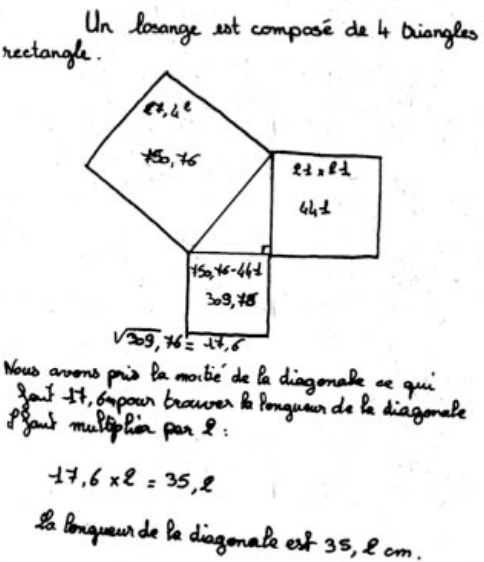 Un losange est composé de 4 triangles
rectangle.
27,4²
750,76
21 x 21
441
750,76-441
309,76
√309,76 = 17,6
Nous avons pris la moitié de la diagonale ce qui
faut 17,6 pour trouver la longueur de la diagonale
il faut multiplier par 2 :
17,6 x 2 = 35,2
La longueur de la diagonale est 35,2 cm.